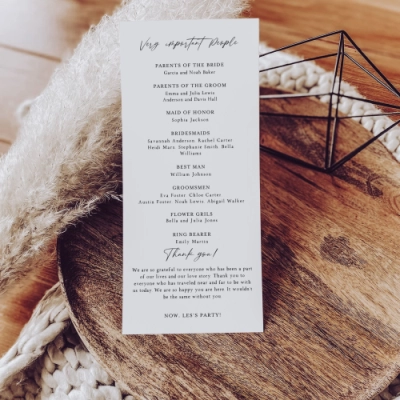 Very important people
PARENTS OF THE BRIDE
Garcia and Noah Baker
PARENTS OF THE GROOM
Emma and Julia Lewis
Anderson and Davis Hall
MAID OF HONOR
Sophia Jackson
BRIDESMAIDS
Savannah Anderson, Rachel Carter
Heidi Marc, Stephanie Smith, Bella
Williams
BEST MAN
William Johnson
GROOMSMEN
Eva Foster, Chloe Carter
Austin Foster, Noah Lewis, Abigail Walker
FLOWER GRILS
Bella and Julia Jones
RING BEARER
Emily Martin
Thank you!
We are so grateful to everyone who has been a part
of our lives and our love story. Thank you to
everyone who has traveled near and far to be with
us today. We are so happy you are here. It wouldn't
be the same without you.
NOW, LES'S PARTY!